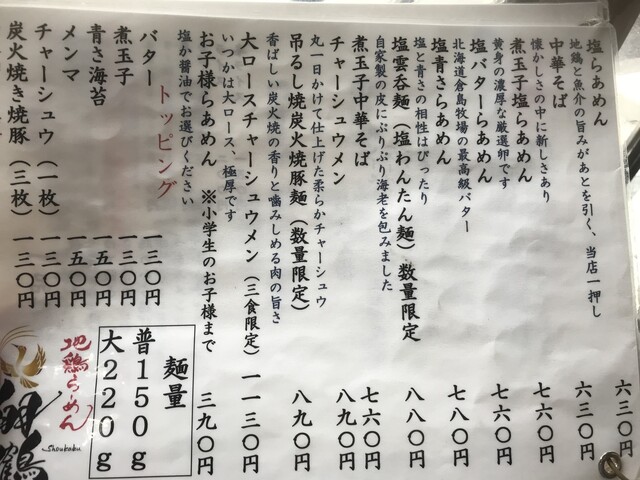 塩らあめん 六三〇円
地鶏と魚介の旨みがあとを引く、当店一押し
中華そば 六三〇円
懐かしさの中に新しさあり
煮玉子塩らあめん 七六〇円
黄身の濃厚な厳選卵です
塩バターらあめん 七六〇円
北海道倉島牧場の最高級バター
塩青さらあめん 七八〇円
塩と青さの相性はぴったり
塩雲呑麺（塩わんたん麺）数量限定 八八〇円
自家製の皮にぷりぷり海老を包みました
煮玉子中華そば 七六〇円
チャーシュウメン 九八〇円
丸一日かけて仕上げた柔らかチャーシュウ
吊るし焼炭火焼豚麺（数量限定） 八九〇円
香ばしい炭火焼の香りと噛みしめる肉の旨さ
大ロースチャーシュウメン（三食限定） 一一三〇円
いつかは大ロース、極厚です
お子様らあめん ※小学生のお子様まで 三九〇円
塩か醤油でお選びください
トッピング
バター 一三〇円
煮玉子 一三〇円
青さ海苔 一五〇円
メンマ 一五〇円
チャーシュウ（一枚） 一三〇円
炭火焼き焼豚（三枚） 一三〇円
麺量
普150g
大220g
地鶏らあめん
鶴
Shoukaku